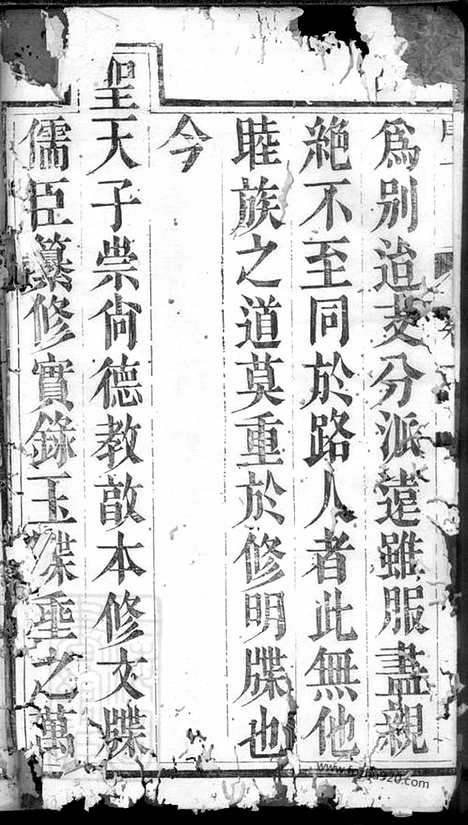 為別迨支分派遠雖服盡親
絶不至同於路人者此無他
睦族之道莫重於修明牒也
今
聖天子崇尚德教敦本修文牒
儒臣纂修實錄玉牒垂之萬
www.fozupu920.com